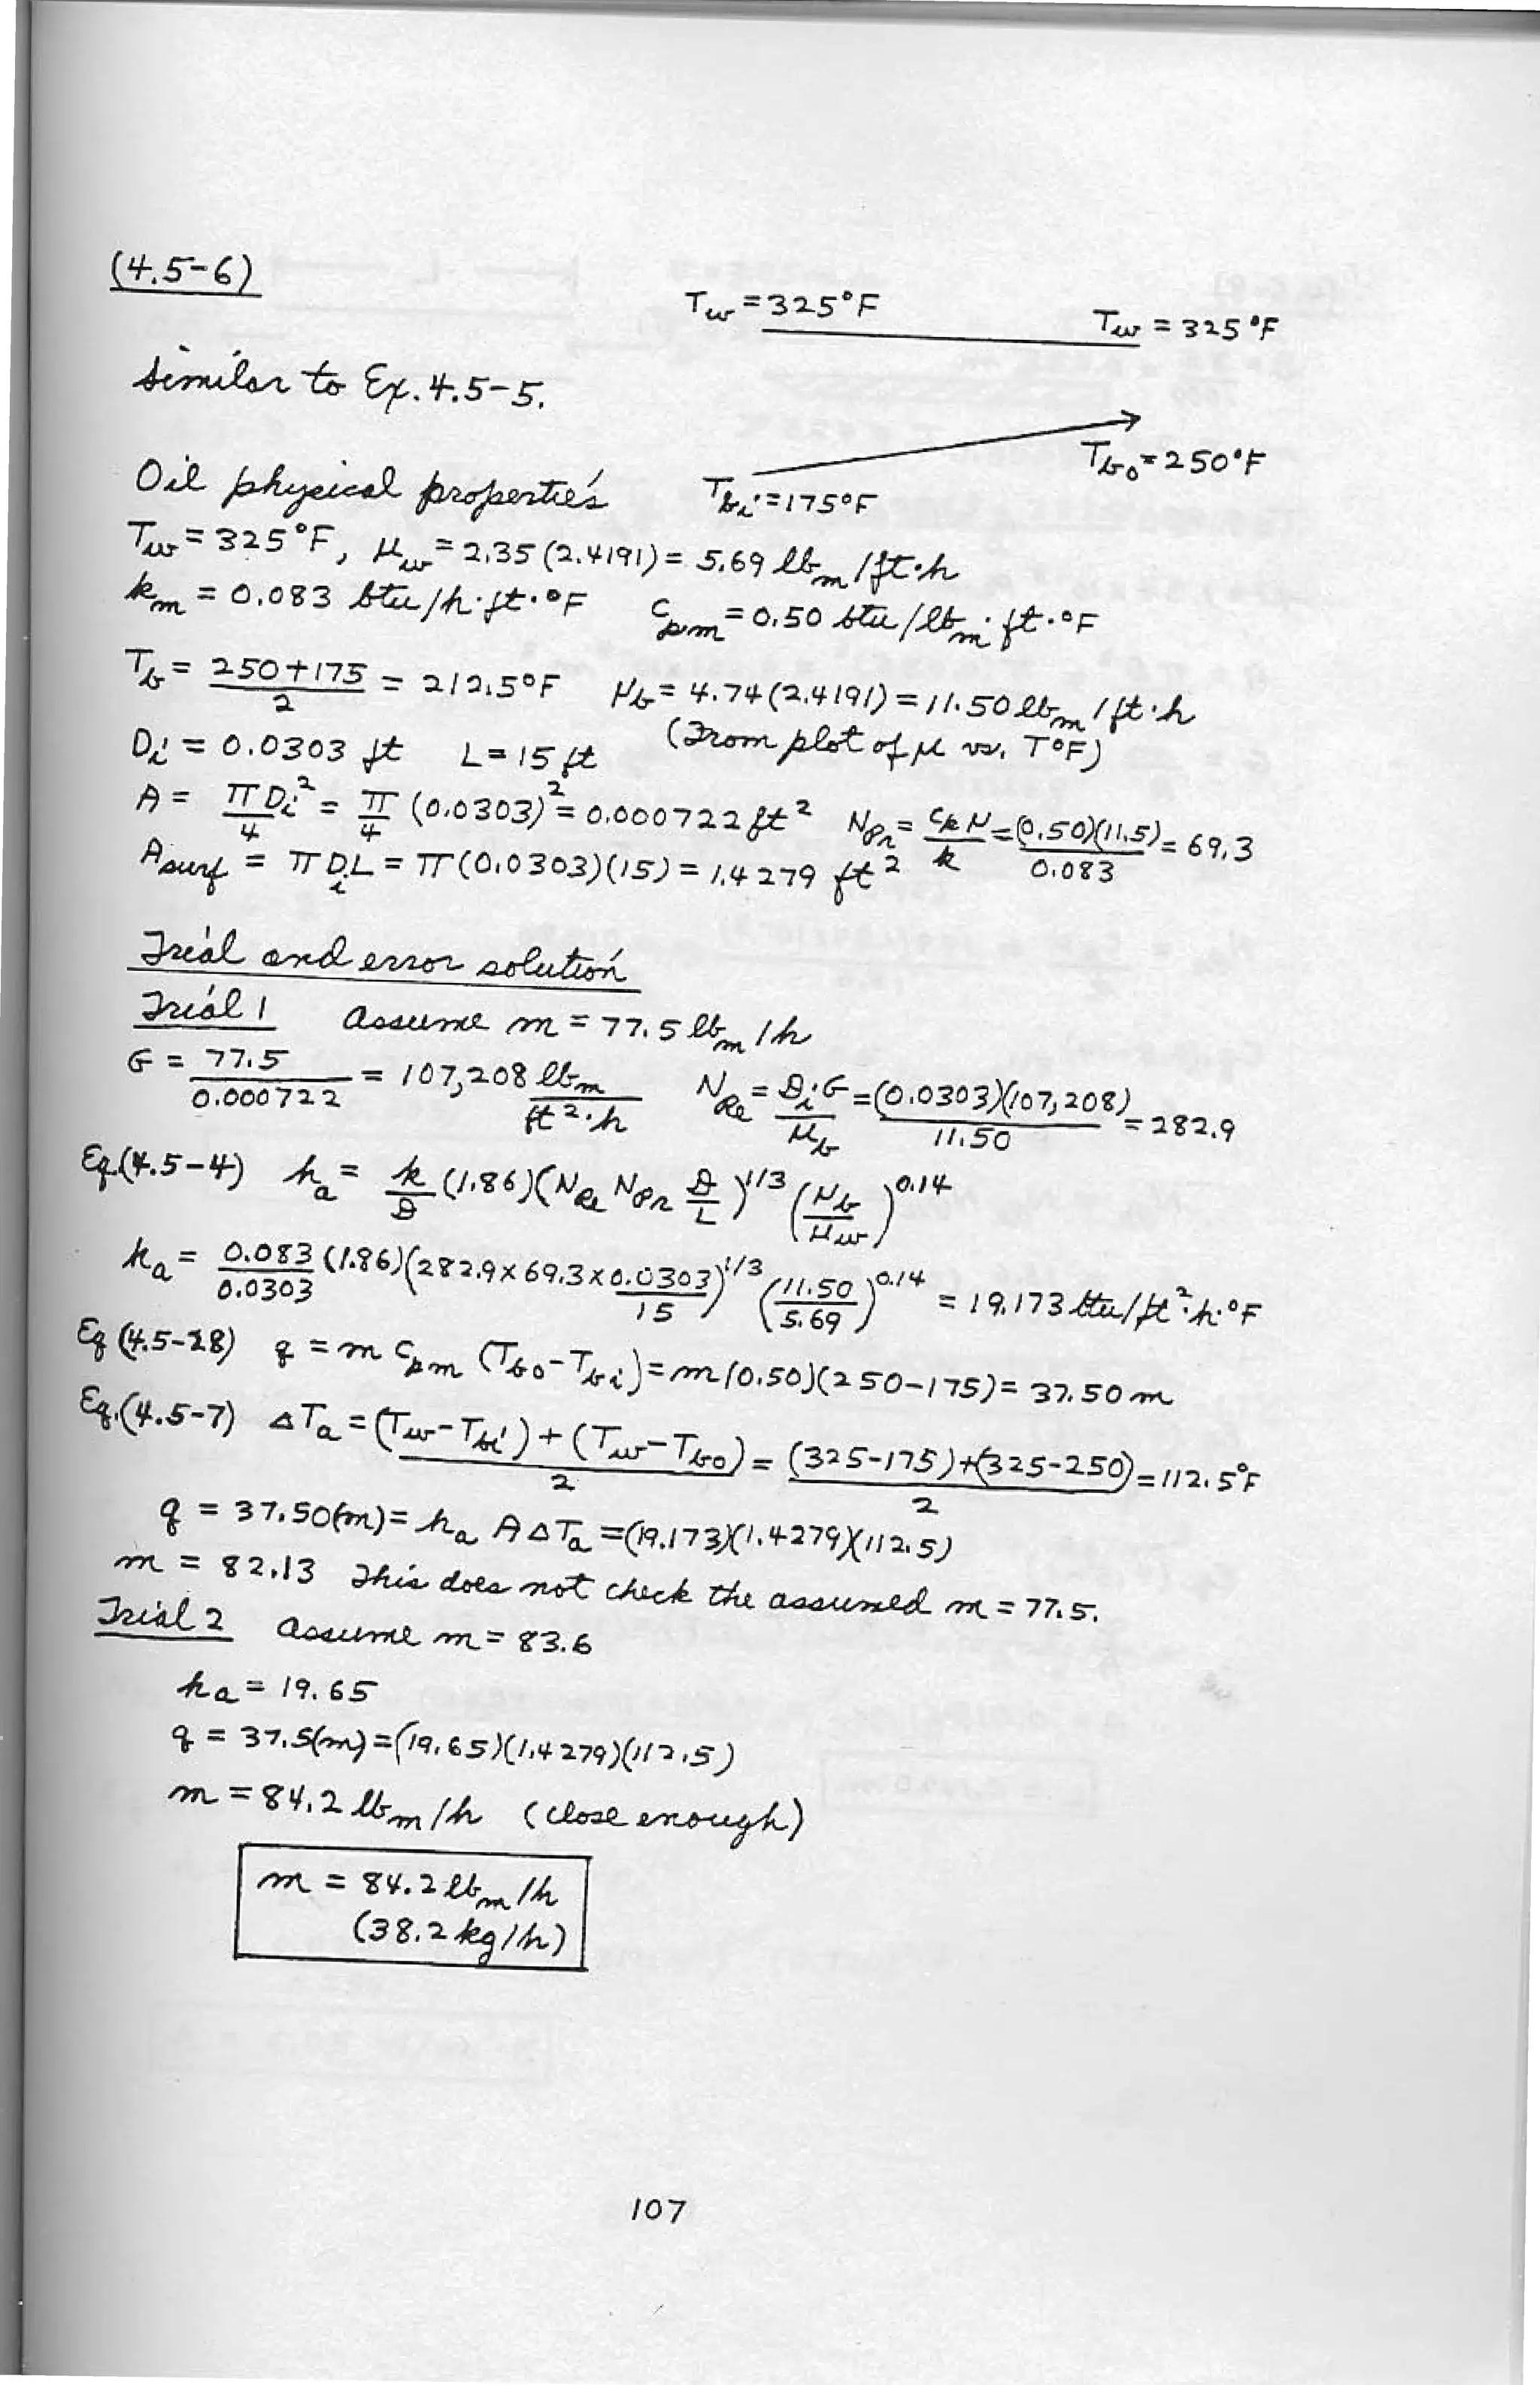 (4.5-6)
T_w = 325°F T_w = 325°F
Similar to Ex. 4.5-5.
T_bo = 250°F
Oil physical properties T_bi = 175°F
T_w = 325°F, μ_w = 2.35 (2.4191) = 5.69 lb_m/ft·h
k_m = 0.083 btu/h·ft·°F c_pm = 0.50 btu/lb_m·ft·°F
T_b = (250+175)/2 = 212.5°F μ_b = 4.74 (2.4191) = 11.50 lb_m/ft·h
(From plot of μ vs. T°F)
D_i = 0.0303 ft L = 15 ft
A = πD_i²/4 = π/4 (0.0303)² = 0.000722 ft² N_Pr = c_p μ/k = (0.50)(11.5)/0.083 = 69.3
A_surf = πD_iL = π(0.0303)(15) = 1.4279 ft²
Trial and error solution
Trial 1 Assume m = 77.5 lb_m/h
G = 77.5/0.000722 = 107,208 lb_m/ft²·h N_Re = D_iG/μ_b = (0.0303)(107,208)/11.50 = 282.9
Eq.(4.5-4) h_a = k/D (1.86)(N_Re N_Pr D/L)^1/3 (μ_b/μ_w)^0.14
h_a = 0.083/0.0303 (1.86)(282.9 x 69.3 x 0.0303/15)^1/3 (11.50/5.69)^0.14 = 19.173 btu/ft²·h·°F
Eq (4.5-18) q = m c_pm (T_bo - T_bi) = m(0.50)(250-175) = 37.50 m
Eq.(4.5-7) ΔT_a = ((T_w - T_bi) + (T_w - T_bo))/2 = ((325-175)+(325-250))/2 = 112.5°F
q = 37.50(m) = h_a A ΔT_a = (19.173)(1.4279)(112.5)
m = 82.13 This does not check the assumed m = 77.5.
Trial 2 Assume m = 83.6
h_a = 19.65
q = 37.5(m) = (19.65)(1.4279)(112.5)
m = 84.2 lb_m/h (close enough)
m = 84.2 lb_m/h
(38.2 kg/h)
107